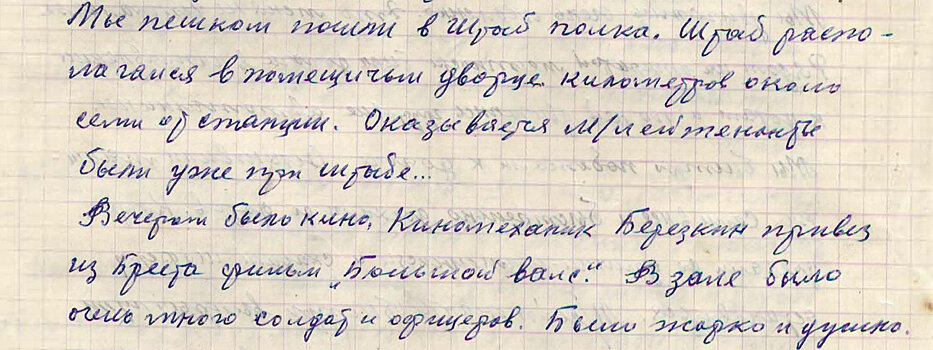 Мы пешком пошли в штаб полка. Штаб распо-
лагался в помещичьм дворце километров около
семи от станции. Оказывается м/лейтенанты
были уже при штабе...
Вечером было кино. Киномеханик Березкин привез
из Бреста фильм "Большой вальс". В зале было
очень много солдат и офицеров. Было жарко и душно.